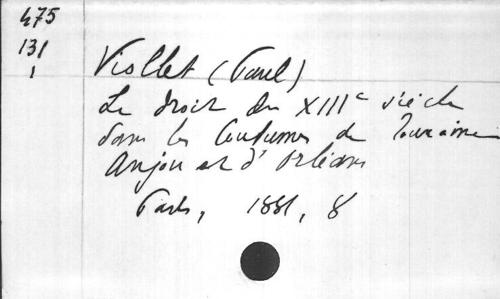 475
131
1
Viollet (Paul)
Le droit du XIIIe siècle
dans les Coutumes de Touraine
Anjou et d'Orléans
Paris, 1881, 8